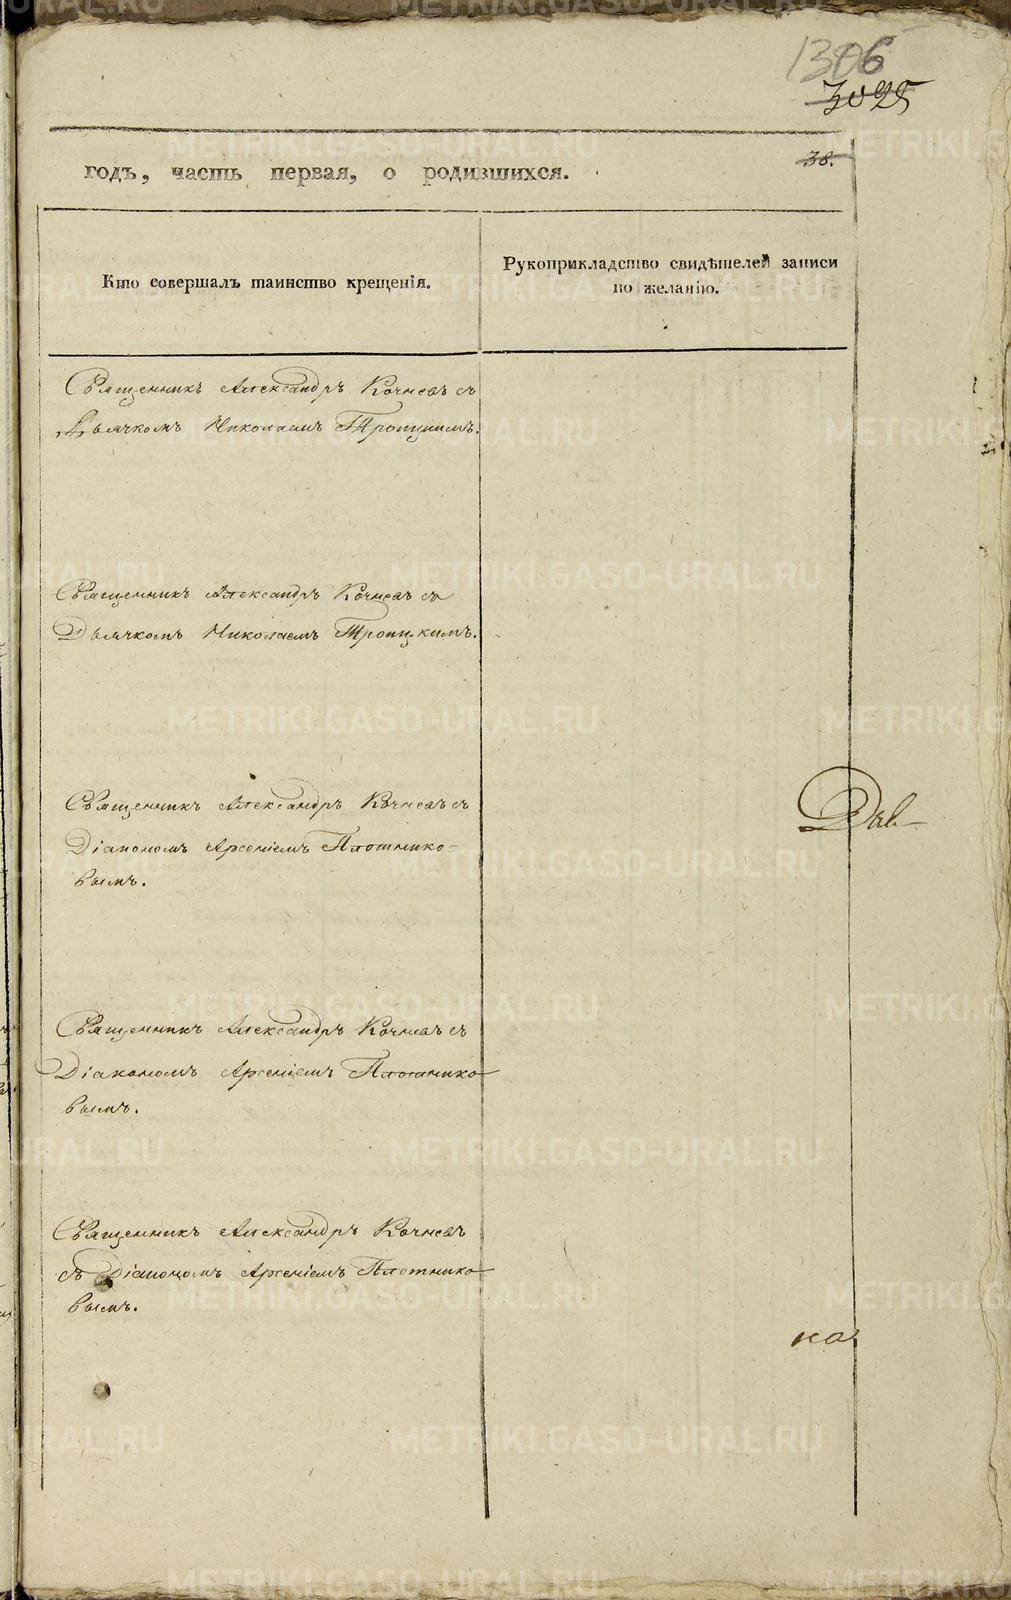 1306
3025
38.
годъ, часть первая, о родившихся.
Кто совершалъ таинство крещенія.
Рукоприкладство свидѣтелей записи
по желанію.
Священникъ Александръ Кочневъ съ
Дьячкомъ Николаемъ Троицкимъ.
Священникъ Александръ Кочневъ съ
Дьячкомъ Николаемъ Троицкимъ.
Священникъ Александръ Кочневъ съ
Діакономъ Арсеніемъ Плотнико-
вымъ.
Священникъ Александръ Кочневъ съ
Діакономъ Арсеніемъ Плотнико-
вымъ.
Священникъ Александръ Кочневъ
съ Діакономъ Арсеніемъ Плотнико-
вымъ.
METRIKI.GASO-URAL.RU